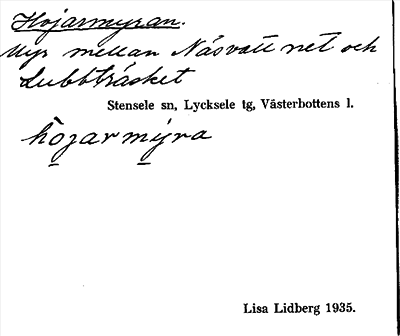 Hojarmyran.
Myr mellan Näsvattnet och
Lubbträsket
Stensele sn, Lycksele tg, Västerbottens l.
hojarmyra
Lisa Lidberg 1935.